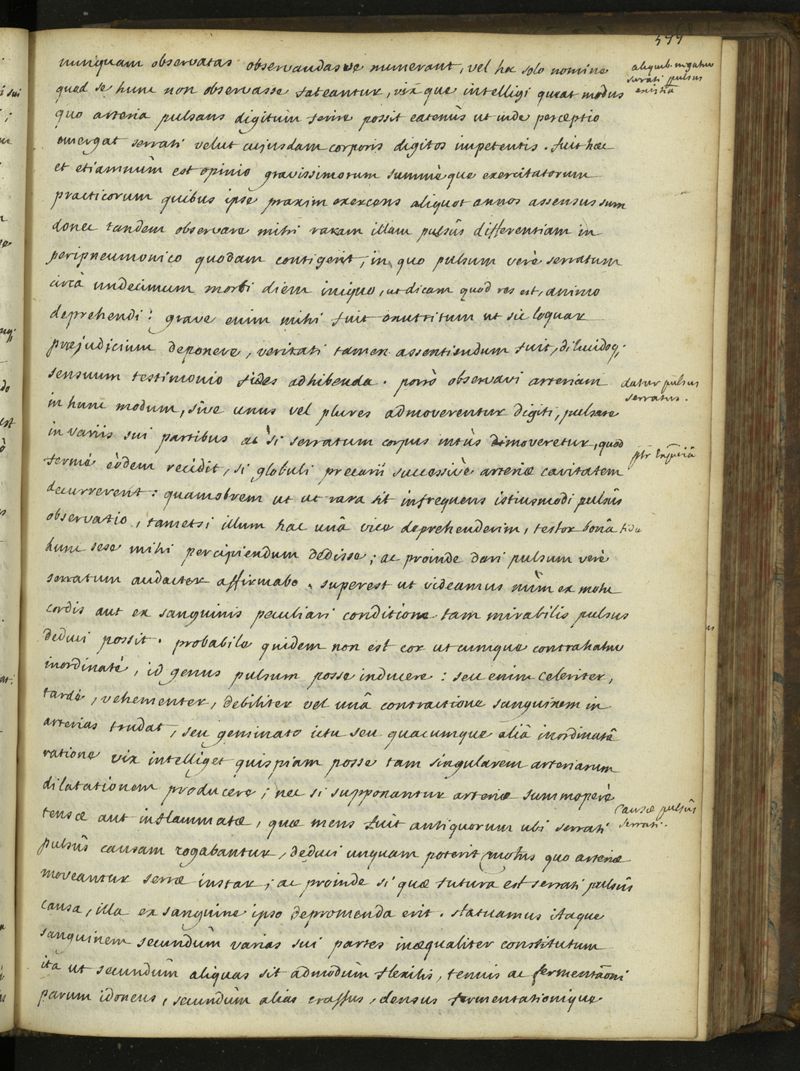 599
nunquam observatas observandasve numerant, vel hoc solo nomine
quod se hunc non observasse fateantur, vixque intelligi queat modus
quo arteria pulsans digitum ferire possit eatenùs ut inde perceptio
emergat serrati velut cujusdam corporis digitos impetentis. fuit hæc
et etiamnùm est opinio gravissimorum summèque exercitatorum
practicorum quibus ipse praxim exercens aliquot annos assensus sum
donec tandem observare mihi raram illam pulsûs differentiam in
peripneumonico quodam contigerit, in quo pulsum verè serratum
circà undecimum morbi diem iniquo, ut dicam quod res est, animo
deprehendi: grave enim mihi fuit onutritum ut sic loquar
præjudicium deponere, veritati tamen assentiendum fuit, dilucidoq;
sensuum testimonio fides adhibenda. porrò observavi arteriam
in hunc modum, sive unus vel plures admoverentur digiti, pulsare
in variis sui partibus ac si serratum corpus intùs dimoveretur, quod
fermè eòdem recidit, si globuli precarii successivè arteriæ cavitatem
decurrerent: quamobrem ut ut rara sit infrequens istiusmodi pulsûs
observatio, tametsi illum hac unâ vice deprehenderim, testor bonâ fide
hunc sese mihi percipiendum dedisse; ac proinde dari pulsum verè
serratum audacter affirmabo. superest ut videamus nùm ex motu
cordis aut ex sanguinis peculiari conditione tam mirabilis pulsus
deduci possit. probabile quidem non est cor utcumque contrahatur
inordinatè, id genus pulsum posse inducere: seu enim celeriter,
tardè, vehementer, debiliter vel unâ contractione sanguinem in
arterias trudat, seu geminato ictu seu quacumque aliâ inordinatâ
ratione vix intelliget quispiam posse tam singularem arteriarum
dilatationem producere; nec si supponantur arteriæ summoperè
tensæ aut inflammatæ, quæ mens fuit antiquorum ubi serrati
pulsûs causam rogabantur, deduci unquam poterit motus quo arteriæ
moveantur serræ instar; ac proinde si quæ futura est serrati pulsûs
causa, illa ex sanguine ipso depromenda erit. statuamus itaque
sanguinem secundùm varias sui partes inæqualiter constitutum
ita ut secundùm aliquas sit admodùm flexilis, tenuis ac fermentãoni
parum idoneus, secundùm alias crassus, densus fermentationique
aliquib. negatur
serrati pulsus
datur pulsus
serratus.
causæ pulsûs
serrati.